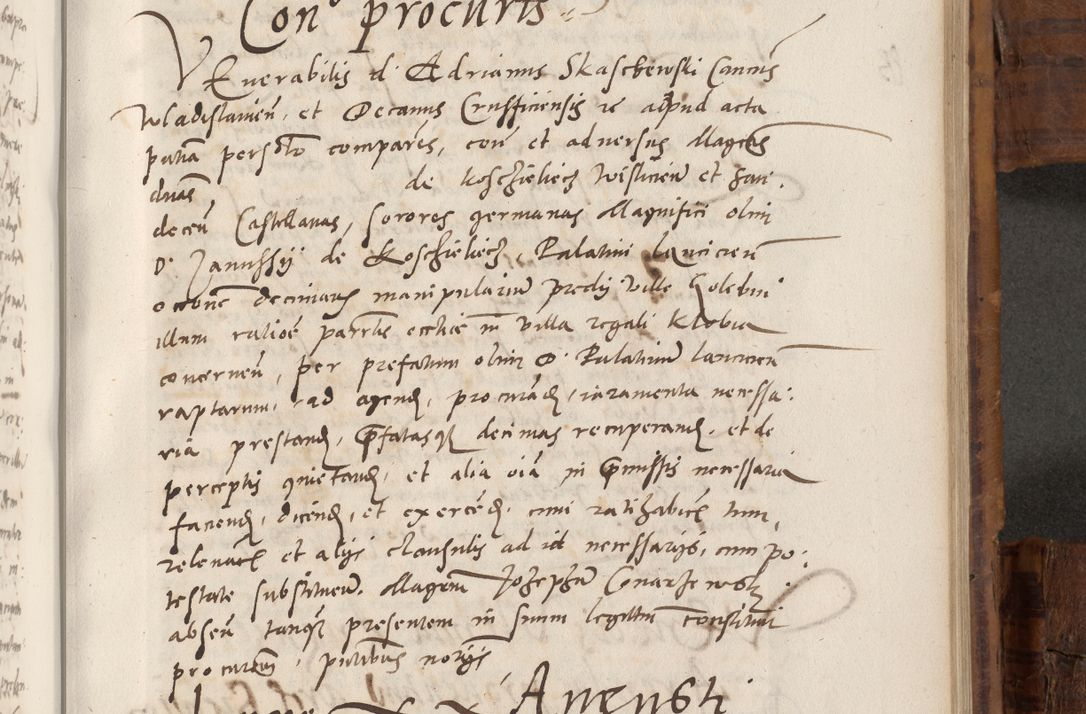 Con° procuris
Venerabilis d. Adrianus Skaschewski Cancus
Wladislavien, et Decanus Crusficiensis 2e apud acta
putia personto compares, con et adversus Magcas
duas de Koschieliecz Wislicien et San.
decen Castellanas, sorores germanas Magnifici olim
D. Janussii de Koschieliecz, Palatini lancicien
occone decimarum manipularium predii ville Golebin
illum ratioe parrtis ecctiae in villa regali Klobia
concernen, per prefatum olim D. Palatinum lancicien
raptarum, ad agend, procurand, iuramenta necessa:
ria prestand, prefatasq decimas recuperand, et de
perceptis quietand, et alia oia in premissis necessaria
faciend, dicend, et exercend, cum ratihabice tum,
relevace et aliis clausulis ad id necessariis, cum po:
testate substituen. Magcum Josephum Conarzewski
absen tanque presentem in suum legittim constituit
procurem, putibus noriis
Augusti